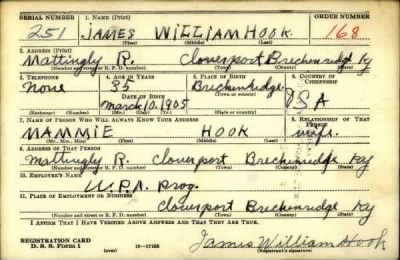 SERIAL NUMBER 1. NAME (Print) ORDER NUMBER
251 JAMES WILLIAM HOOK 168
(First) (Middle) (Last)
2. ADDRESS (Print)
Mattingly R. Cloverport Breckenridge Ky
(Number and street or R. F. D. number) (Town) (County) (State)
3. TELEPHONE 4. AGE IN YEARS 5. PLACE OF BIRTH 6. COUNTRY OF CITIZENSHIP
None 35 Breckenridge
DATE OF BIRTH (Town or county) USA
March 10. 1905
(Exchange) (Number) (Mo.) (Day) (Yr.) (State or country)
7. NAME OF PERSON WHO WILL ALWAYS KNOW YOUR ADDRESS 8. RELATIONSHIP OF THAT PERSON
MAMMIE HOOK wife.
(Mr., Mrs., Miss) (First) (Middle) (Last)
9. ADDRESS OF THAT PERSON
Mattingly R. Cloverport Breckenridge Ky
(Number and street or R. F. D. number) (Town) (County) (State)
10. EMPLOYER'S NAME
W.P.A. Prog.
11. PLACE OF EMPLOYMENT OR BUSINESS
Cloverport Breckenridge Ky
(Number and street or R. F. D. number) (Town) (County) (State)
I AFFIRM THAT I HAVE VERIFIED ABOVE ANSWERS AND THAT THEY ARE TRUE.
REGISTRATION CARD
D. S. S. Form 1 (over) 16—17105 James William Hook
(Registrant's signature)